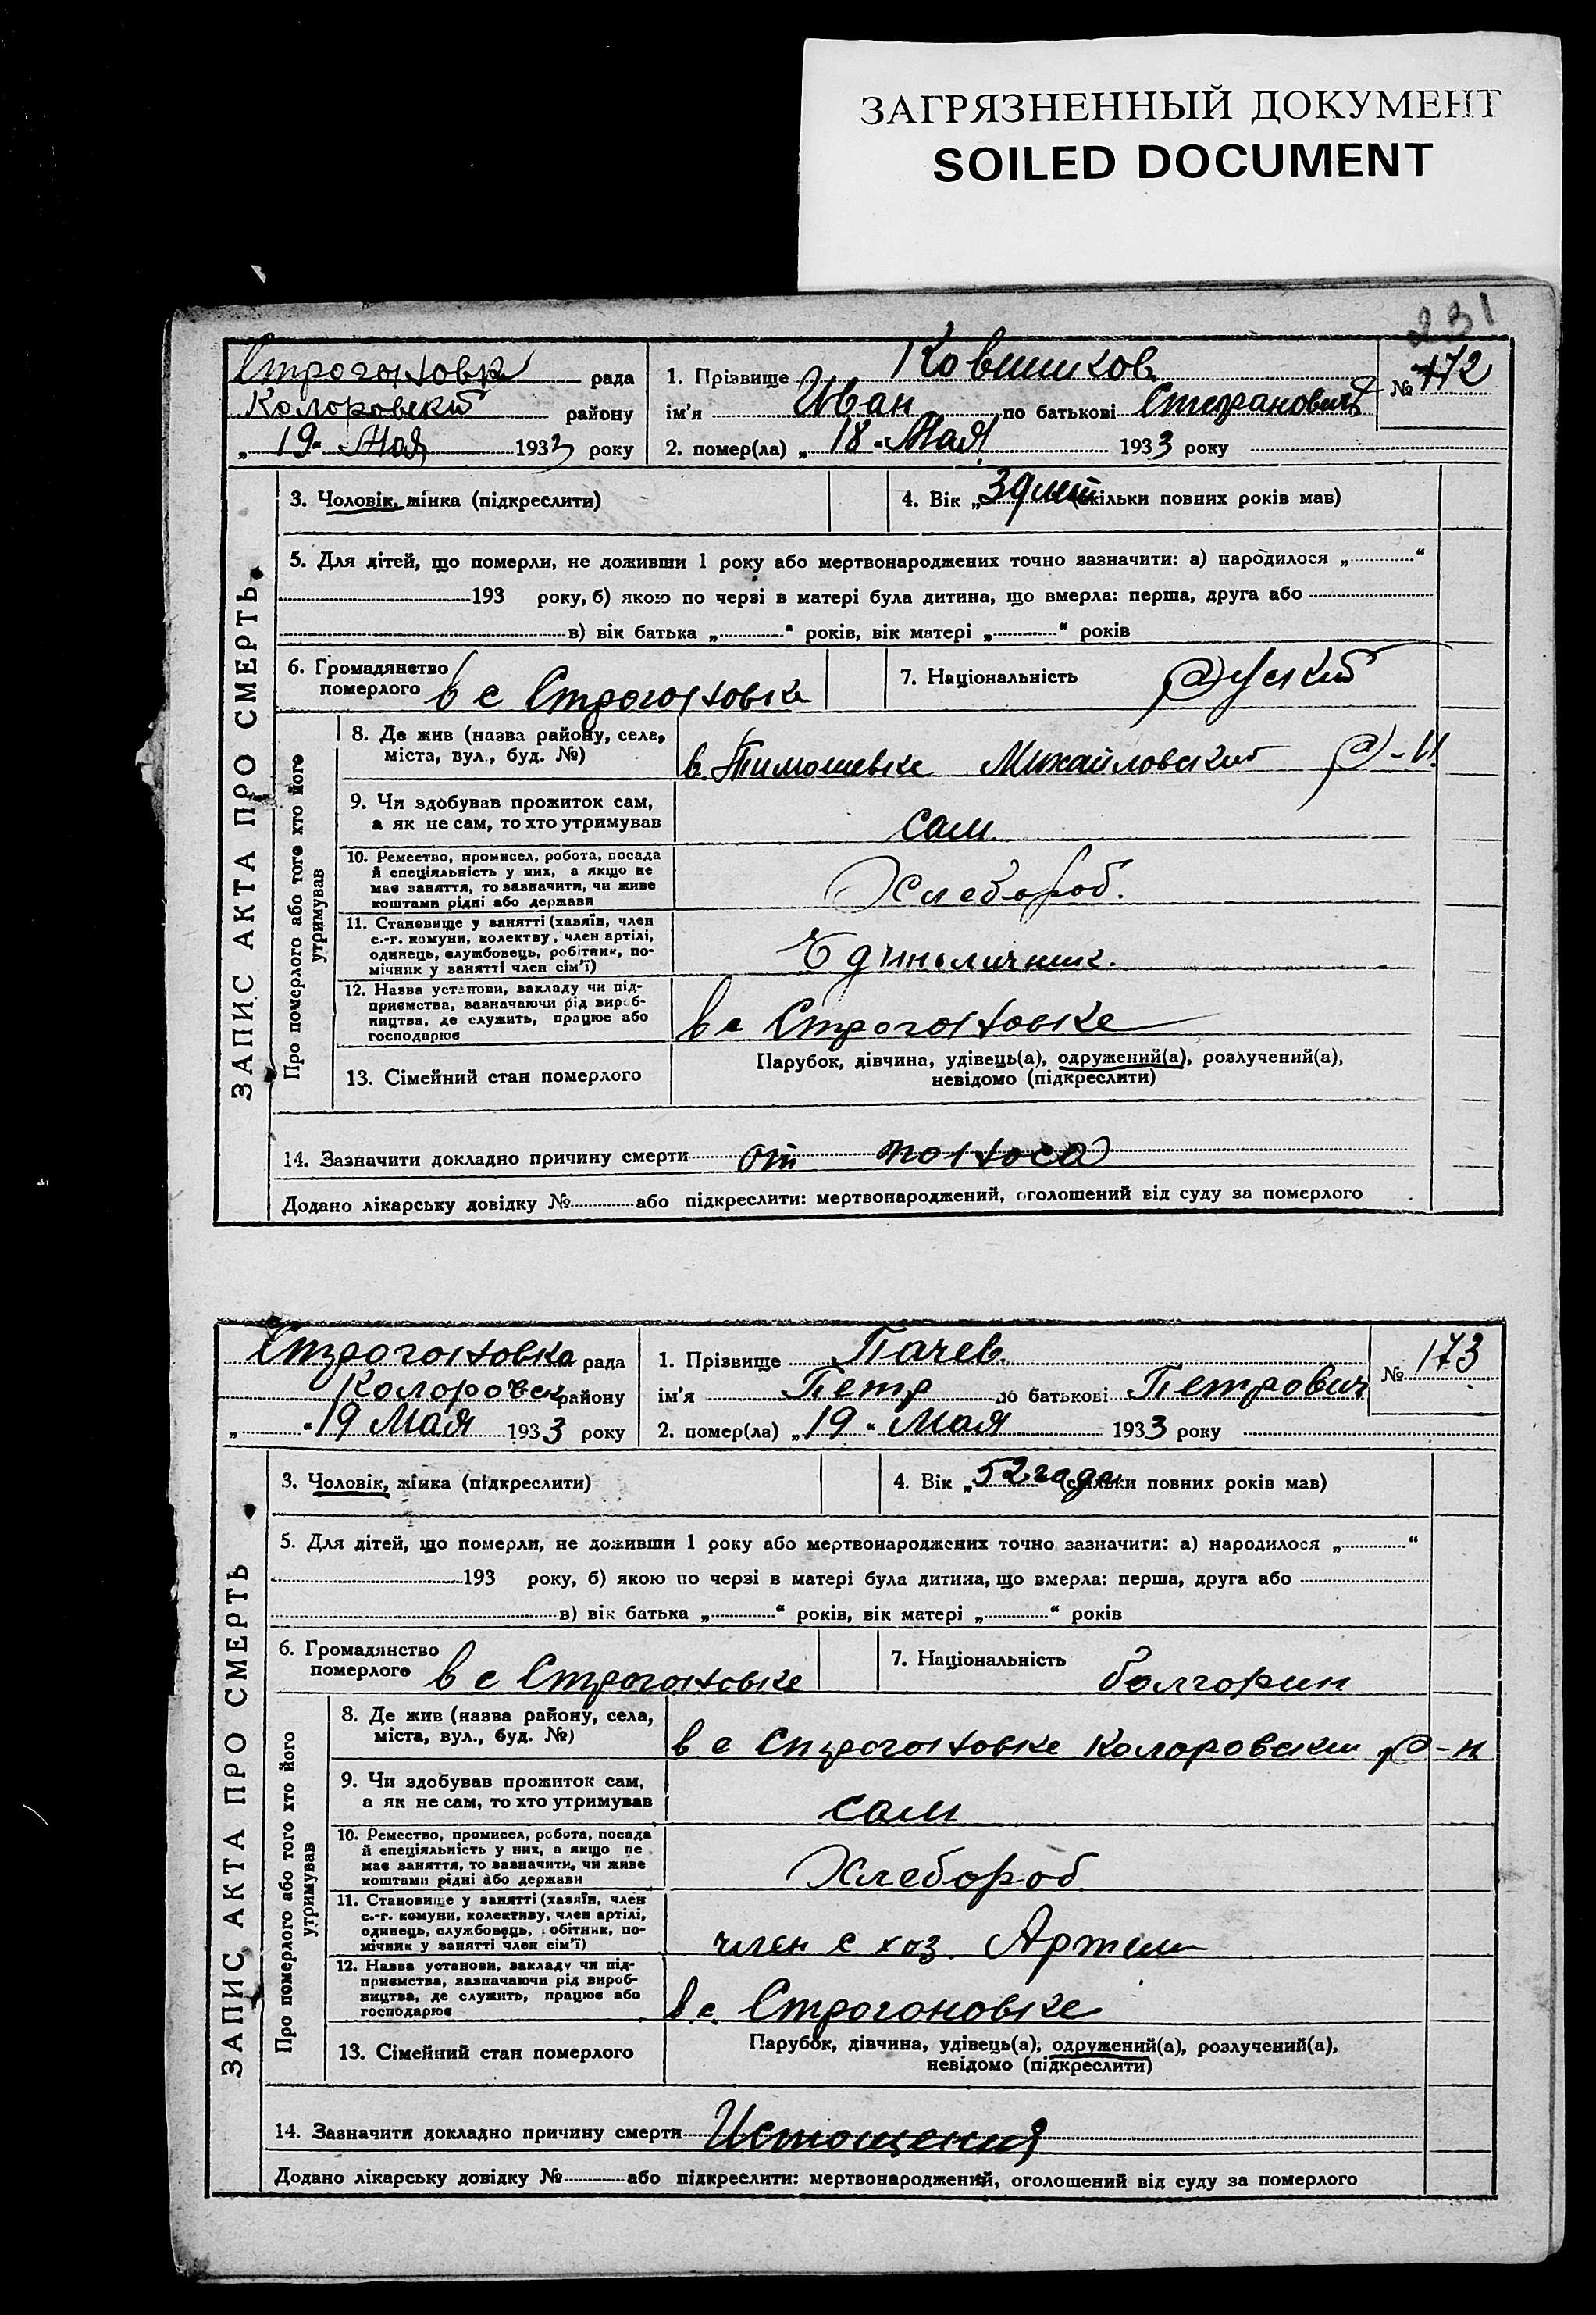 ЗАГРЯЗНЕННЫЙ ДОКУМЕНТ
SOILED DOCUMENT
231
ЗАПИС АКТА ПРО СМЕРТЬ
Строгоновка рада
Коларовский району
„19" Мая 1933 року
1. Прізвище Ковшиков
№ 172
ім'я Иван по батькові Степанович
2. помер(ла) „18" Мая 1933 року
3. Чоловік, жінка (підкреслити)
4. Вік „39 лет (скільки повних років мав)
5. Для дітей, що померли, не доживши 1 року або мертвонароджених точно зазначити: а) народилося „ “
193 року, б) якою по черзі в матері була дитина, що вмерла: перша, друга або
в) вік батька „ “ років, вік матері „ “ років
6. Громадянство
померлого в с Строгоновке
7. Національність Руский
Про померлого або того хто його
утримував
8. Де жив (назва району, села,
міста, вул., буд. №)
в. Тимошевке Михайловский р-н
9. Чи здобував прожиток сам,
а як не сам, то хто утримував
сам
10. Ремество, промисел, робота, посада
й спеціяльність у них, а якщо не
має заняття, то зазначити, чи живе
коштами рідні або держави
Хлебороб.
11. Становище у занятті (хазяїн, член
с.-г. комуни, колективу, член артілі,
одинець, службовець, робітник, по-
мічник у занятті член сім'ї)
Единоличник.
12. Назва установи, закладу чи під-
приємства, зазначаючи рід вироб-
ництва, де служить, працює або
господарює
в с Строгоновке
13. Сімейний стан померлого
Парубок, дівчина, удівець(а), одружений(а), розлучений(а),
невідомо (підкреслити)
14. Зазначити докладно причину смерти от поноса
Додано лікарську довідку № або підкреслити: мертвонароджений, оголошений від суду за померлого
ЗАПИС АКТА ПРО СМЕРТЬ
Строгоновка рада
Коларовск району
„ "19 Мая 1933 року
1. Прізвище Пачев.
№ 173
ім'я Петр по батькові Петрович
2. помер(ла) „19" Мая 1933 року
3. Чоловік, жінка (підкреслити)
4. Вік „52 года (скільки повних років мав)
5. Для дітей, що померли, не доживши 1 року або мертвонароджених точно зазначити: а) народилося „ “
193 року, б) якою по черзі в матері була дитина, що вмерла: перша, друга або
в) вік батька „ “ років, вік матері „ “ років
6. Громадянство
померлого в с Строгоновке
7. Національність болгорин
Про померлого або того хто його
утримував
8. Де жив (назва району, села,
міста, вул., буд. №)
в с Строгоновке Коларовским р-н
9. Чи здобував прожиток сам,
а як не сам, то хто утримував
сам
10. Ремество, промисел, робота, посада
й спеціяльність у них, а якщо не
має заняття, то зазначити, чи живе
коштами рідні або держави
Хлебороб
11. Становище у занятті (хазяїн, член
с.-г. комуни, колективу, член артілі,
одинець, службовець, робітник, по-
мічник у занятті член сім'ї)
член с хоз. Артели
12. Назва установи, закладу чи під-
приємства, зазначаючи рід вироб-
ництва, де служить, працює або
господарює
в с. Строгоновке
13. Сімейний стан померлого
Парубок, дівчина, удівець(а), одружений(а), розлучений(а),
невідомо (підкреслити)
14. Зазначити докладно причину смерти Истощения
Додано лікарську довідку № або підкреслити: мертвонароджений, оголошений від суду за померлого